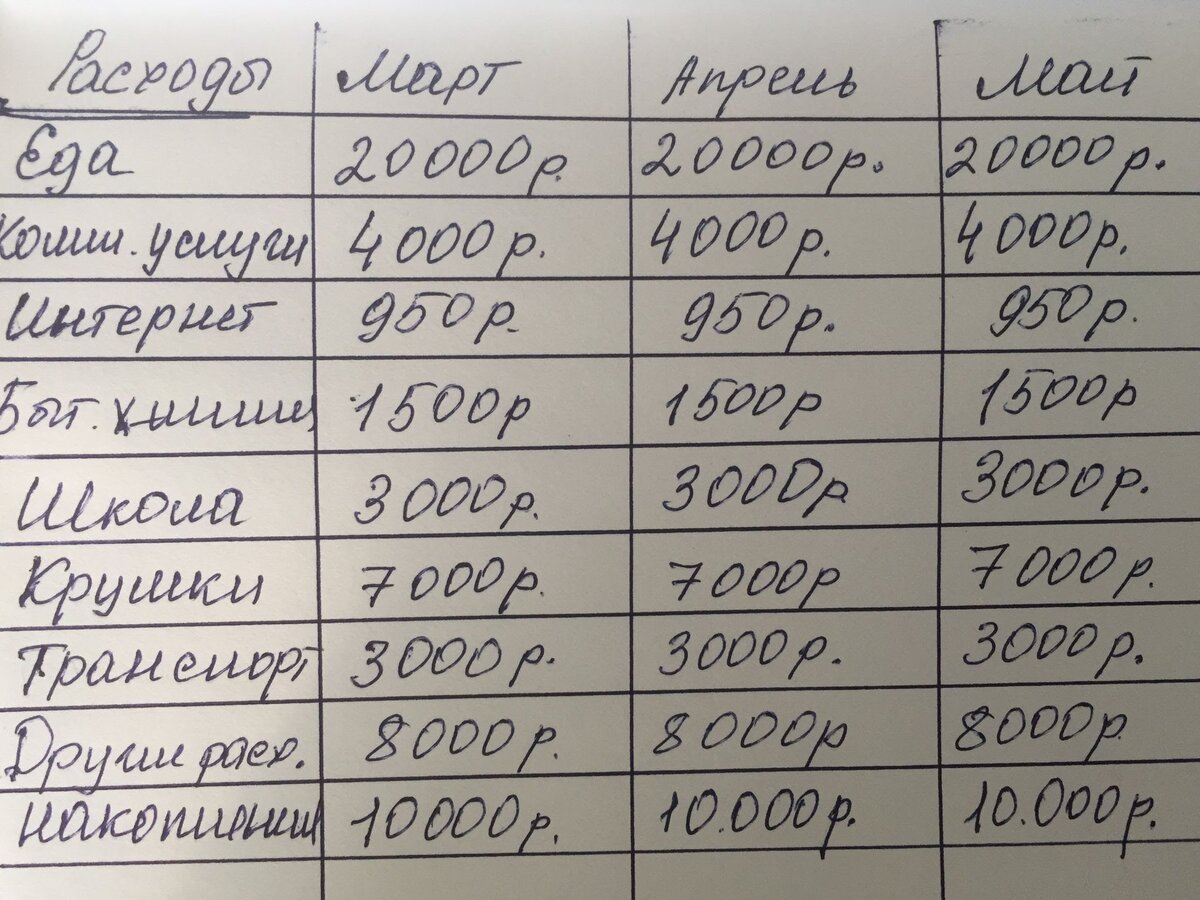 Расходы Март Апрель Май
Еда 20000р. 20000р. 20000р.
Комм. услуги 4000р. 4000р. 4000р.
Интернет 950р. 950р. 950р.
Быт. химия 1500р 1500р 1500р
Школа 3000р. 3000р 3000р.
Кружки 7000р. 7000р 7000р.
Транспорт 3000р. 3000р. 3000р.
Другие расх. 8000р. 8000р 8000р
накопления 10000р. 10.000р. 10.000р.